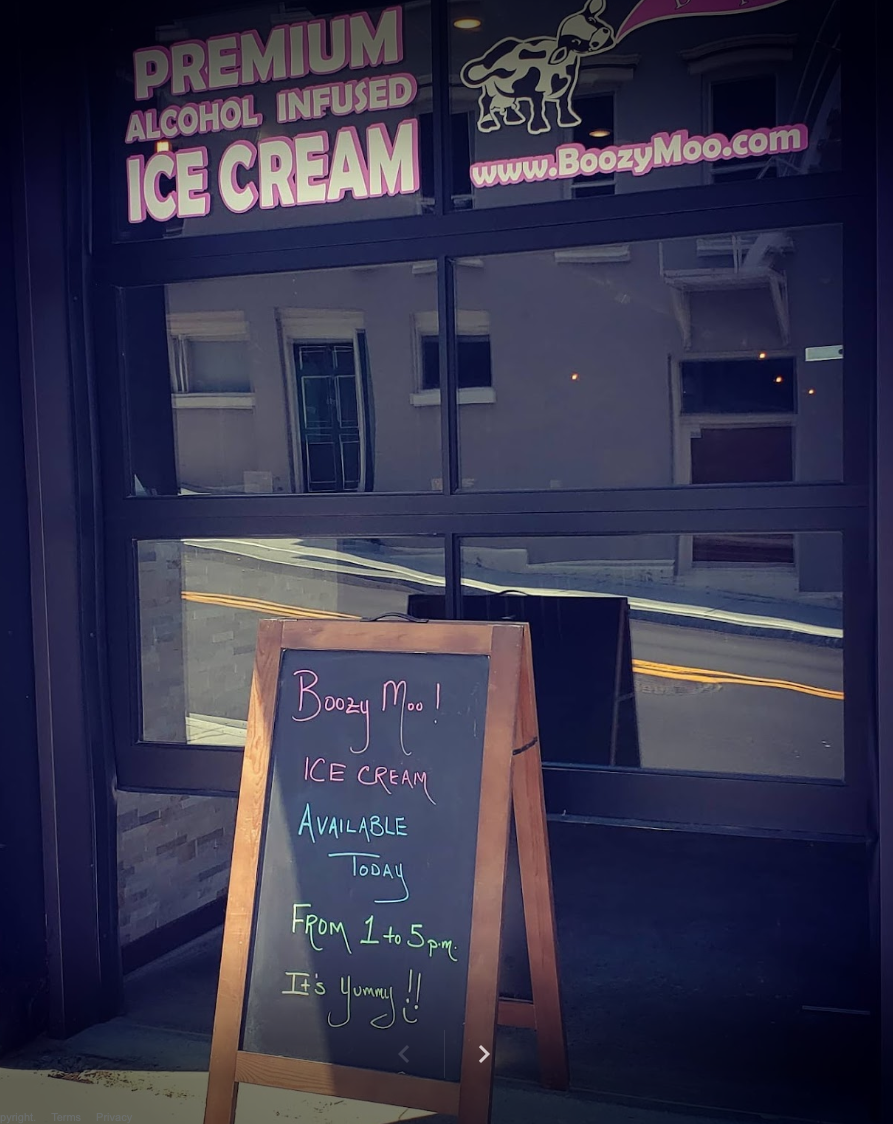 PREMIUM
ALCOHOL INFUSED
ICE CREAM
www.BoozyMoo.com
Boozy Moo!
ICE CREAM
AVAILABLE
TODAY
FROM 1 to 5 p.m.
It's Yummy!!
Terms Privacy